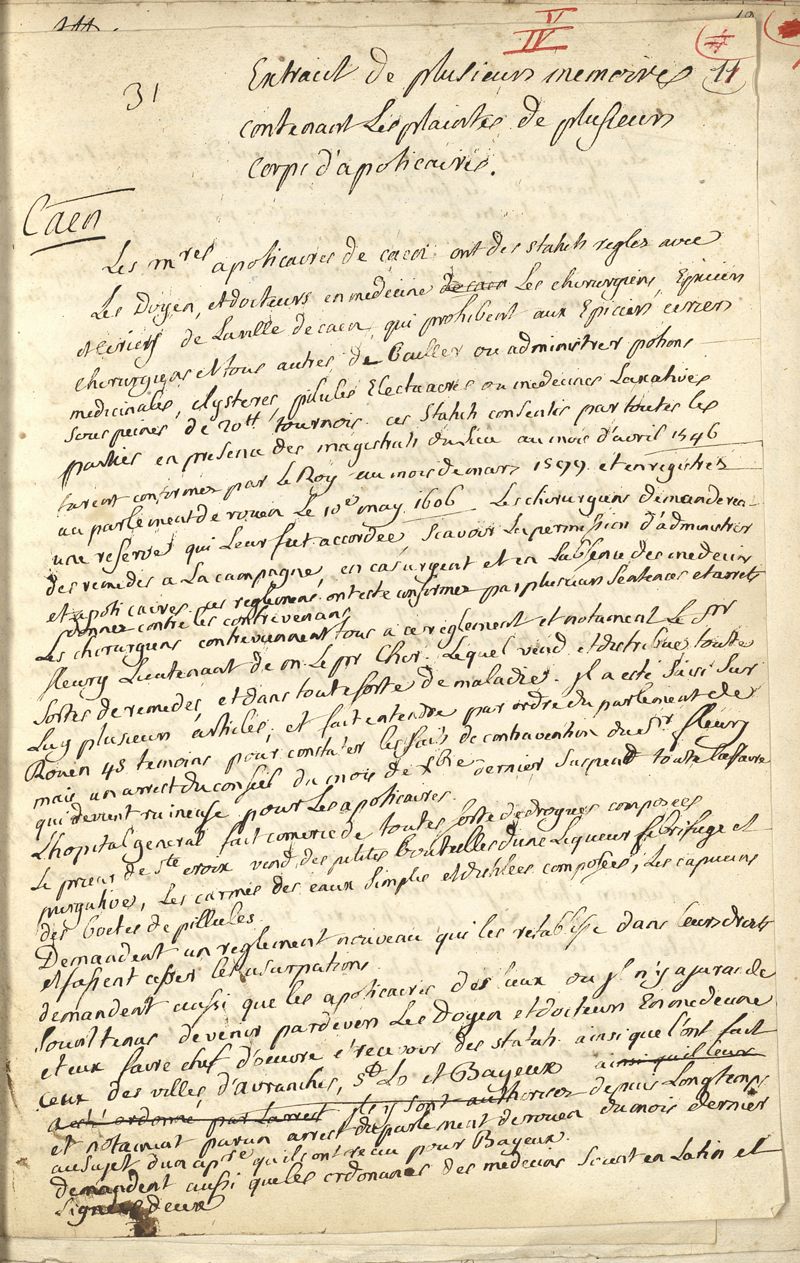 V
IV
11
31
Extrait de plusieurs memoires
contenant Les plaintes de plusieurs
Corps d'apoticaires.
Caen
Les mres apoticaires de caen ont des statuts reglez avec
Les Doyen, et docteurs en medecine de caen Les chirurgiens, Epiciers
et Ciriers de La ville de caen, qui prohibent aux Epiciers ciriers
chirurgiens et tous autres de Bailler ou administrer potions
medicinales, clysteres, pilules Electuaires ou medecines Laxatives
sous peines de 20tt tournois. ces statuts consentis par toutes les
parties en presence des magistrats du Lieu au mois d'avril 1546
furent confirmez par Le Roy au mois de mars 1599. et enregistrez
au parlement de rouen Le 10e may 1606 Les chirurgiens demanderent
une reserve qui Leur fut accordee scavoir La permission d'administrer
des remedes a La campagne, en cas urgent et en L'absence des medecins
et apoticaires. ces reglemens ont esté confirmez par plusieurs sentences et arrets
donnez contre les contrevenans
Les chirurgiens contreviennent tous a ce reglement et notament Le Sr
fleury Lieutenant de m. Le pr Chir. Lequel vend et distribue toute
sortes de remedes, et dans toute sorte de maladie. Jl a esté saisi sur
Luy plusieurs articles, et fait entendre par ordre du parlement de
Rouen 45 temoins pour constater les faits de contravention du Sr fleury
mais un arrest du conseil du mois de xbre dernier suspend toute L'affaire
qui devient ruineuse pour Les apoticaires.
L'hopital general fait comerce de toutes sorte de drogues composees
Le prieur de Ste croix vend des petites bouteilles d'une Liqueur febrifuge et
purgative, Les carmes des eaux simples et distilees composees, Les capucins
des boetes de pillules.
Demandent un reglement nouveau qui les retablisse dans leurs droits
et fassent cesser les usurpations
demandent aussi que les apoticaires des lieux ou Jl n'y a jurande
soient tenus de venir pardevers Les Doyen et docteurs En medecine
et eux faire chef d'oeuvre et recevoir des statuts ainsi que l'ont fait
ceux des villes d'avranches, St Lo et Bayeux ainsi qu'il leur
a esté ordonné par L'arrest Jls y sont authorisez depuis Longtemps
et notament par un arrest du parlement de rouen du mois dernier
au sujet d'un apre qu'ils ont recu pour Bayeux.
demandent aussi que les ordonances des medecins soient en Latin et
signées d'eux